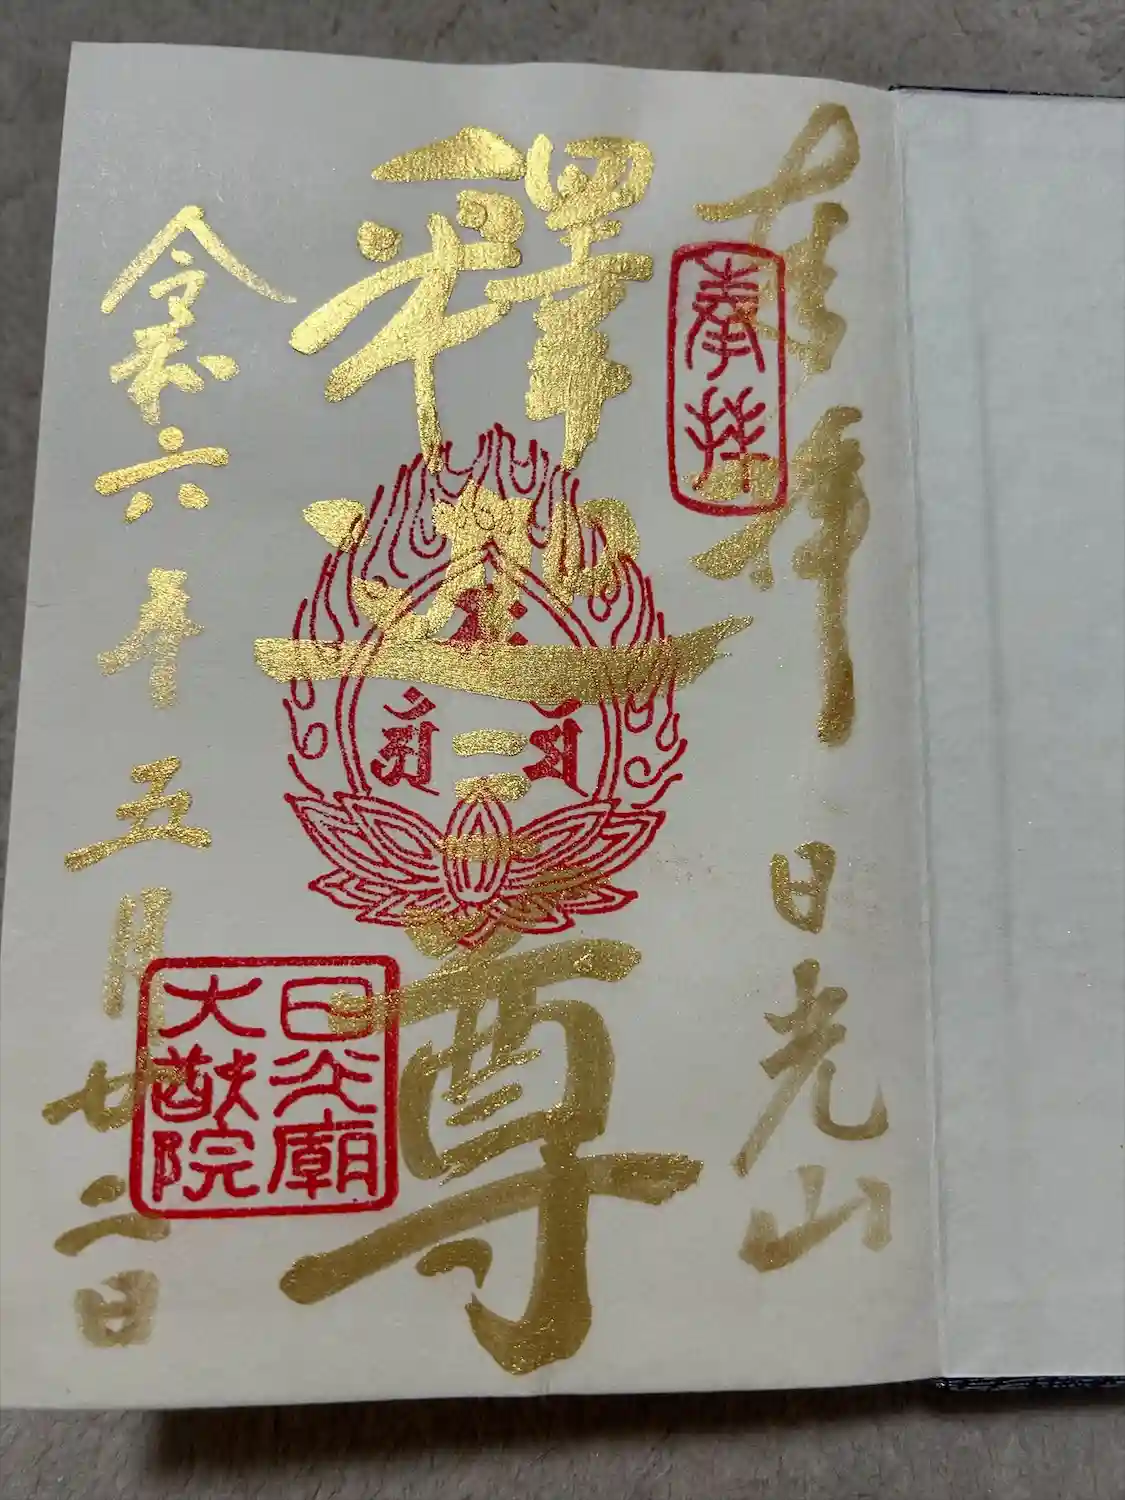 奉拝 日光山
奉拝
釋迦三尊
日光廟
大猷院
令和六年五月廿二日